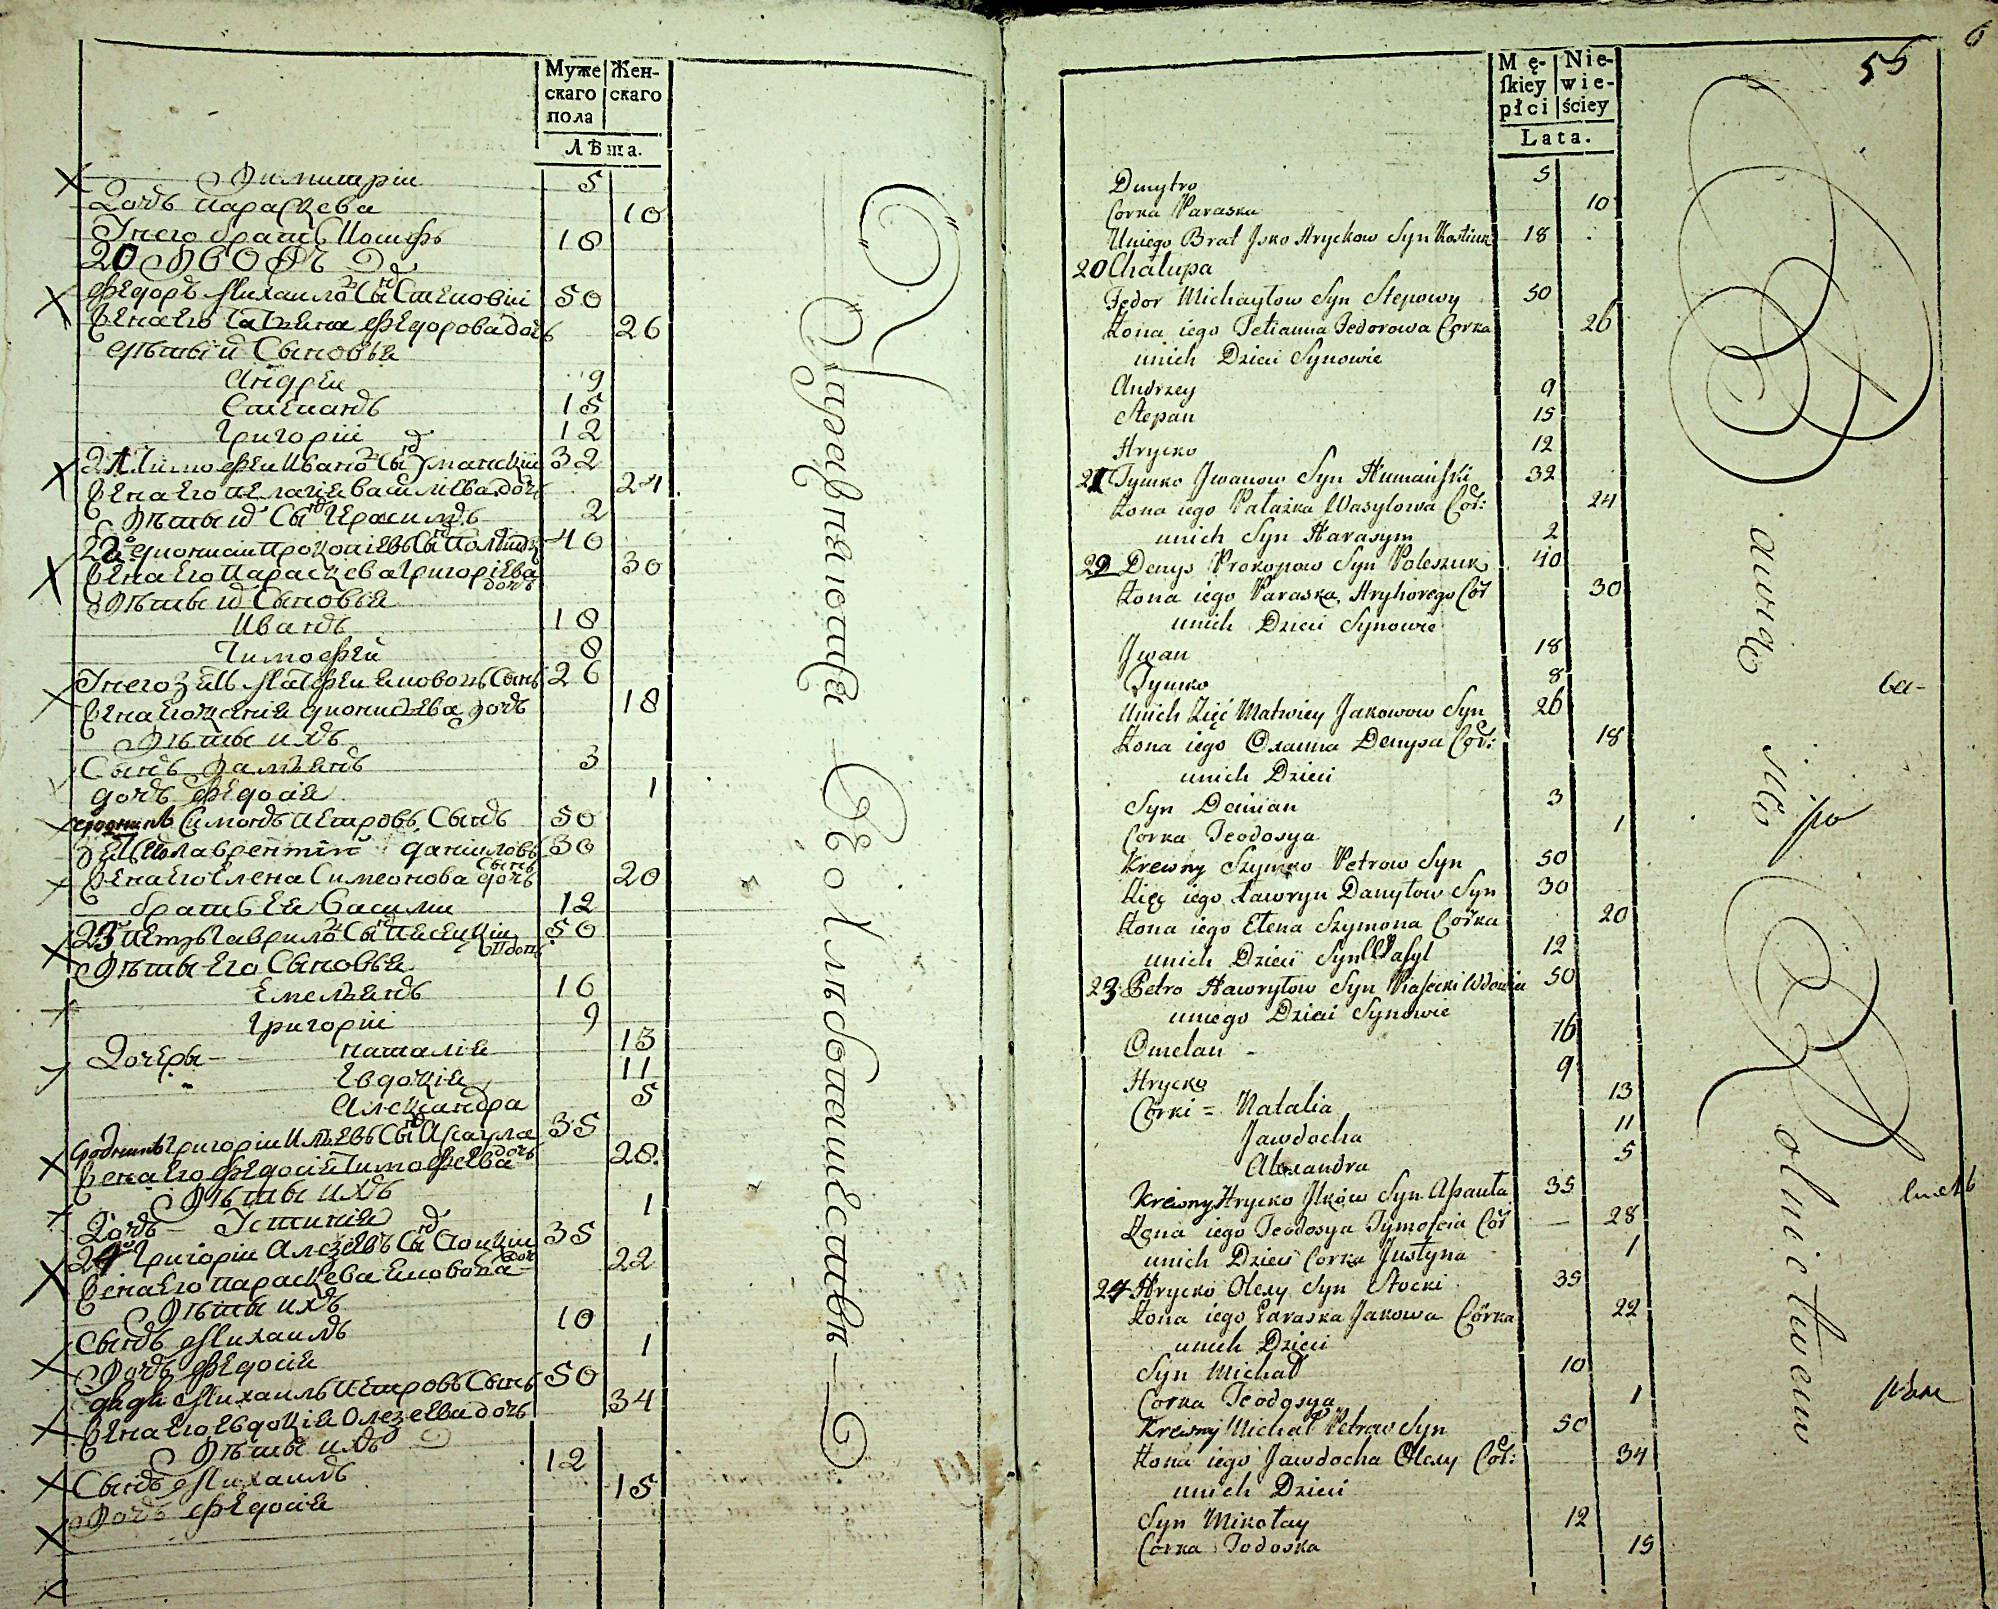 Муже
скаго
пола
Жен-
скаго
Лѣта.
Димитрій 5
Дочь Параскева 10
У него братъ Иосифъ 18
20 Дворъ
Федоръ Михайловъ Сынъ Степовій 50
Жена Его Татьяна Федорова дочь 26
Дѣти ихъ Сыновья
Андрей 9
Степанъ 15
Григорій 12
21 Тимофей Ивановъ Сынъ Уманскій 32
Жена Его Пелагія Василиева дочь 24
Дѣти ихъ Сынъ Герасимъ 2
22 Дионисій Прокопіевъ Сынъ 40
Жена Его Параскева Григоріева дочь 30
Дѣти ихъ Сыновья
Иванъ 18
Тимофей 8
У него зять Матфей Якововъ Сынъ 26
Жена Его Ксенія Дионисіева дочь 18
Дѣти ихъ
Сынъ Даміянъ 3
Дочь Федосія 1
Симонъ Петровъ Сынъ 50
Зять Его Лаврентій Даниловъ Сынъ 30
Жена Его Елена Симеонова дочь 20
братъ Ея Василій 12
23 Петръ Гавриловъ Сынъ Пясецкій вдовъ 50
Дѣти Его Сыновья
Емельянъ 16
Григорій 9
Дочеры Наталія 13
Евдокія 11
Александра 5
Григорій Ильевъ Сынъ Асаула 35
Жена Его Федосія Тимофеева дочь 28
Дѣти ихъ
Дочь Устинія 1
24 Григорій Алексѣевъ Сынъ Стоцкій 35
Жена Его Параскева Яковова дочь 22
Дѣти ихъ
Сынъ Михаилъ 10
Дочь Федосія 1
Дядя Михаилъ Петровъ Сынъ 50
Жена Его Евдокія Олексеева дочь 34
Дѣти ихъ
Сынъ Михаилъ 12
Дочь Федосія 15
55
6
Mę-
skiey
płci
Nie-
wie-
ściey
Lata.
Dmytro 5
Corka Paraska 10
Uniego Brat Jsko Hryckow Syn Kostiuk 18
20 Chałupa
Fedor Michayłow Syn Stepowy 50
Żona iego Tetianna Fedorowa Corka 26
unich Dzieci Synowie
Andrzey 9
Stepan 15
Hrycko 12
21 Tymko Jwanow Syn Humański 32
Żona iego Pałażka Wasylowa Cór: 24
unich Syn Harasym 2
22 Denys Prokopow Syn Poleszuk 40
Żona iego Paraska Hryhorego Cór 30
unich Dzieci Synowie
Jwan 18
Tymko 8
Unich Zięć Matwiey Jakowow Syn 26
Żona iego Oxanna Denysa Cór: 18
unich Dzieci
Syn Demian 3
Corka Teodosya 1
Krewny Szymko Petrow Syn 50
Zięć iego Ławryn Danyłow Syn 30
Żona iego Elena Szymona Córka 20
unich Dzieci Syn Wasyl 12
23 Petro Hawryłow Syn Piasecki Wdowiec 50
uniego Dzieci Synowie
Omelan 16
Hrycko 9
Córki = Natalia 13
Jawdocha 11
Alexandra 5
Krewny Hrycko Jlków Syn Asauła 35
Żona iego Teodosya Tymofeia Cór 28
unich Dzieci Corka Justyna 1
24 Hrycko Olexy Syn Stocki 35
Żona iego Paraska Jakowa Córka 22
unich Dzieci
Syn Michał 10
Corka Teodosya 1
Krewny Michał Petrow Syn 50
Żona iego Jawdocha Olexy Cór: 34
unich Dzieci
Syn Mikołay 12
Corka Todoska 15